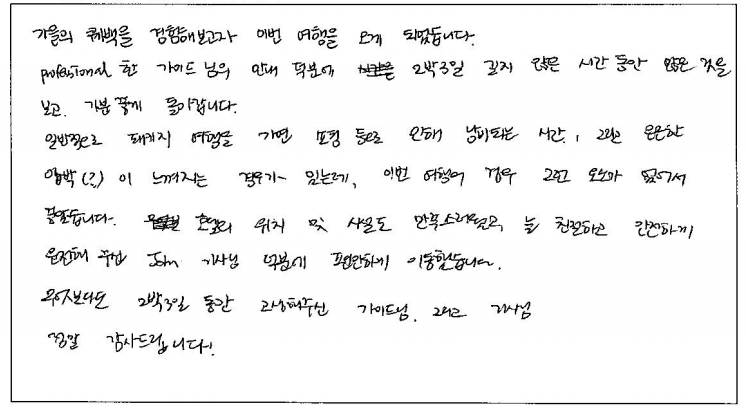 가을의 퀘백을 경험해보고자 이번 여행을 오게 되었습니다.
professional 한 가이드 님의 안내 덕분에 2박3일 길지 않은 시간 동안 많은 것을
보고, 기분 좋게 돌아갑니다.
일반적으로 패키지 여행을 가면 쇼핑 등으로 인해 낭비되는 시간, 그리고 은은한
압박(?) 이 느껴지는 경우가 있는데, 이번 여행의 경우 그런 요소가 없어서
좋았습니다. 호텔의 위치 및 시설도 만족스러웠고, 늘 친절하고 안전하게
운전해 주신 John 기사님 덕분에 편안하게 이동했습니다.
무엇보다도 2박3일 동안 고생해주신 가이드님, 그리고 기사님
정말 감사드립니다!